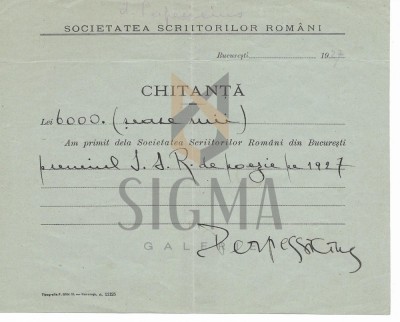 d. Perpessicius
SOCIETATEA SCRIITORILOR ROMÂNI
București 19
CHITANȚĂ
Lei 6000. (șease mii)
Am primit dela Societatea Scriitorilor Români din București
premiul S. S. R. de poezie pe 1927
SIGMA
GALE
Perpessicius